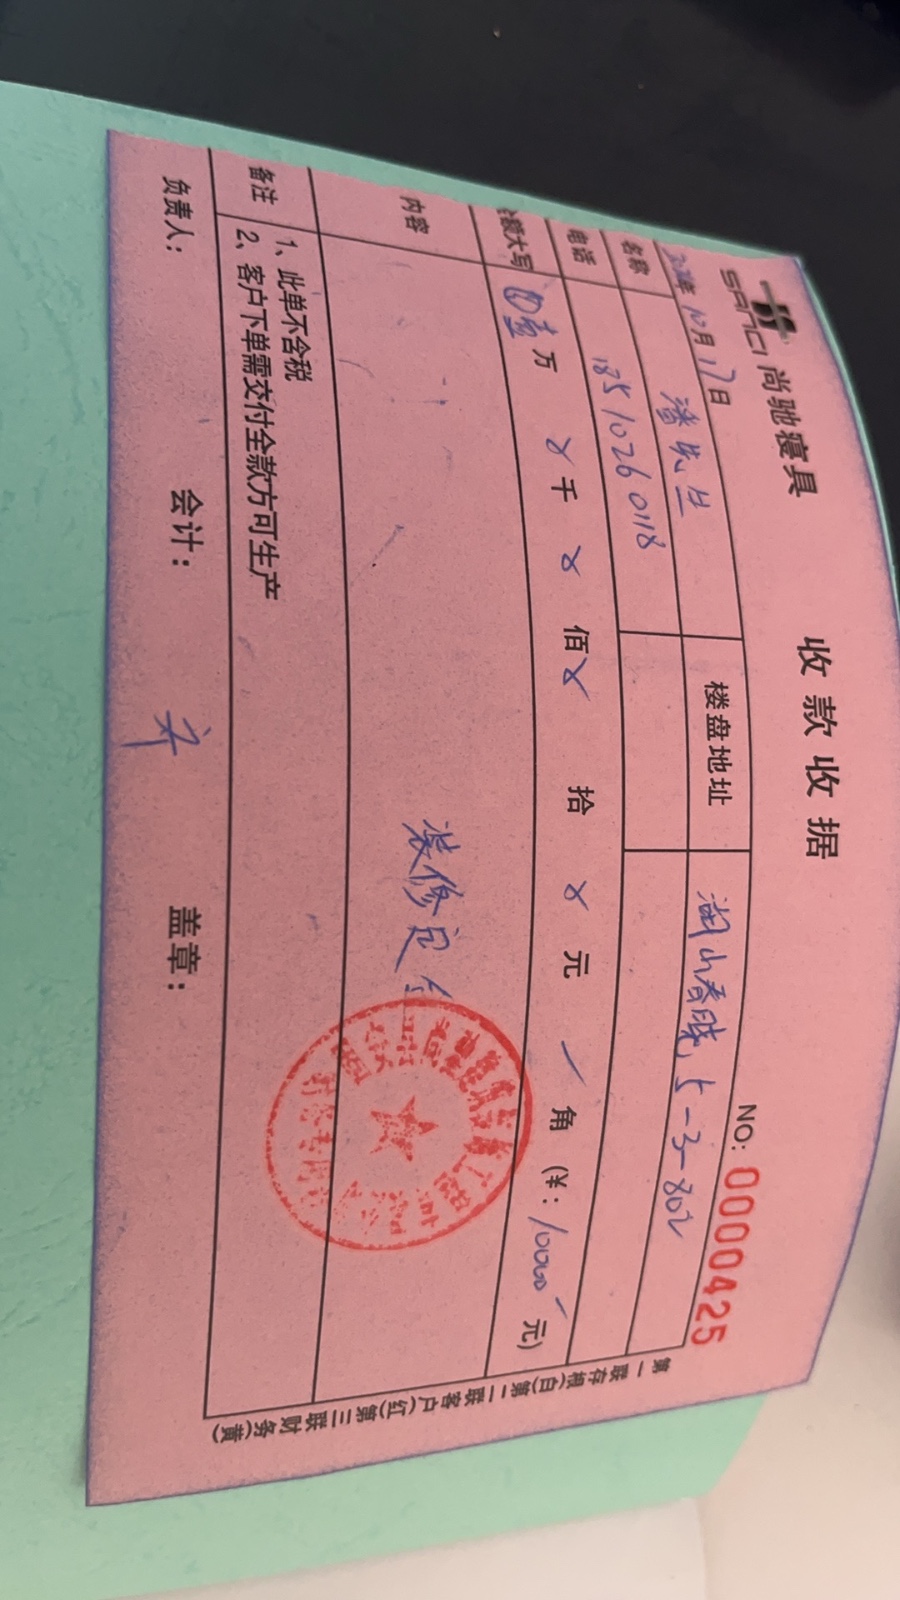 SANCI 尚驰寝具
收款收据
NO: 0000425
年10月17日
名称 潘先生 楼盘地址 湖山春晓 5-3-802
电话 18510260118
金额大写 ⊗壹万 X仟 X佰 X拾 X元 / 角 (¥: 10000 元)
内容 装修定金
备注 1、此单不含税
2、客户下单需交付全款方可生产
负责人: 会计: 盖章:
第一联存根(白)第二联客户(红)第三联财务(黄)